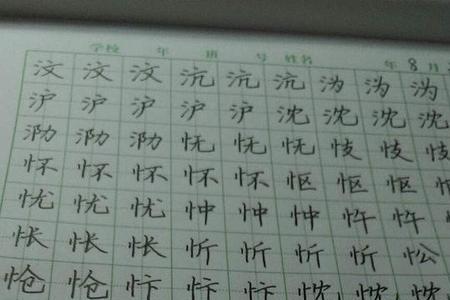 学校 年 班 号 姓名 年 8 月
汶 汶 汶 沆 沆 沆 沩 沩 沩
沪 沪 沪 沪 沪 沈 沈 沈 沈
泐 泐 泐 怃 怃 怃 忮 忮 忮
怀 怀 怀 怀 怀 怄 怄 怄 怄
忧 忧 忧 忡 忡 忡 忤 忤 忤
怅 怅 怅 忻 忻 忻 忻 忪
怆 怆 怆 忭 忭 忭 忱 忱 忱